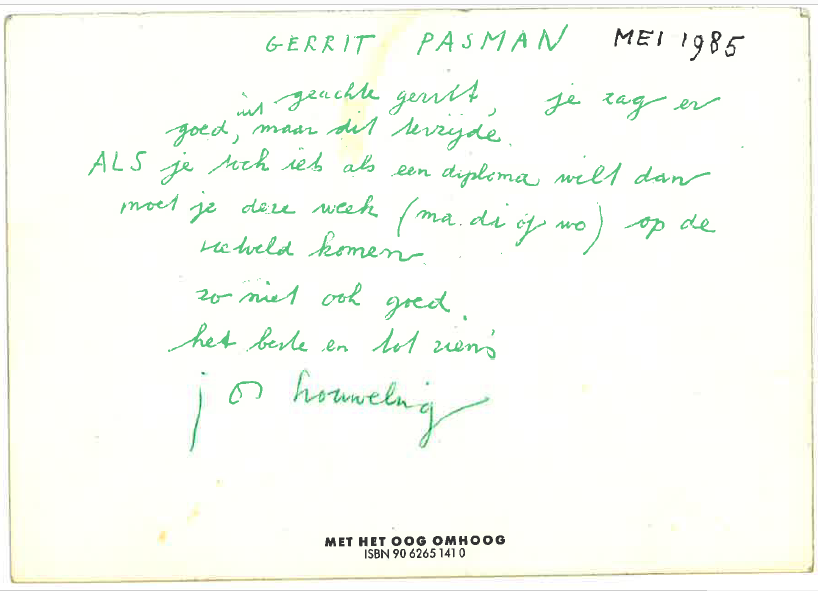 GERRIT PASMAN MEI 1985
geachte gerrit, je zag er
uit
goed, maar dit terzijde.
ALS je toch iets als een diploma wilt dan
moet je deze week (ma. di of wo) op de
rietveld komen
zo niet ook goed.
het beste en tot ziens
jon houweling
MET HET OOG OMHOOG
ISBN 90 6265 141 0